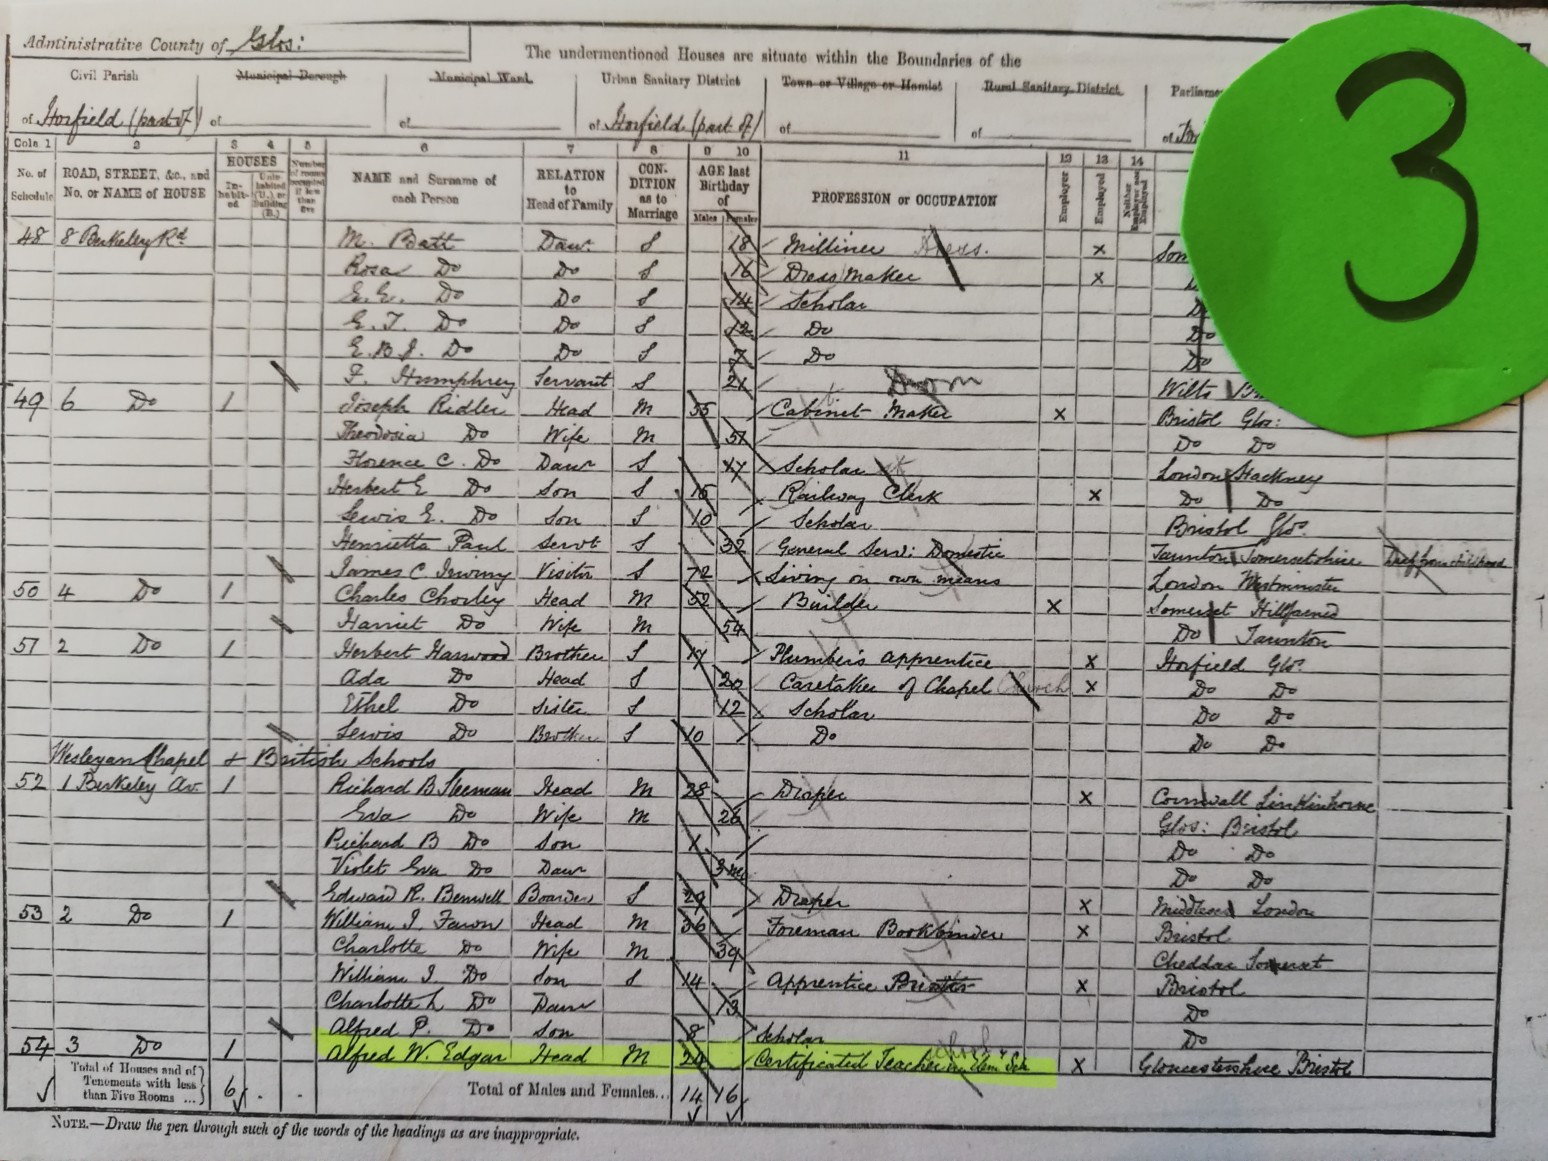 Administrative County of Glos:
The undermentioned Houses are situate within the Boundaries of the
3
Civil Parish Municipal Borough Municipal Ward Urban Sanitary District Town or Village or Hamlet Rural Sanitary District
of Horfield (part of) of of of Horfield (part of) of of of
Cols. 1 2 3 4 5 6 7 8 9 10 11 12 13 14
No. of Schedule ROAD, STREET, &c., and No. or NAME of HOUSE HOUSES Inhabited Uninhabited (U.), or Building (B.) Number of rooms occupied if less than five NAME and Surname of each Person RELATION to Head of Family CONDITION as to Marriage AGE last Birthday of Males Females PROFESSION or OCCUPATION Employer Employed Neither Employer nor Employed
48 8 Berkeley Rd M. Batt Daur S 18 Milliner Dress. x
Rosa Do Do S 16 Dress maker x
E.E. Do Do S 14 Scholar
E.T. Do Do S 12 Do Do
E.B.J. Do Do S 7 Do Do
F. Humphrey Servant S 21 Dom Wilts
49 6 Do 1 Joseph Ridler Head M 55 Cabinet Maker x Bristol Glos:
Theodosia Do Wife M 51 Do Do
Florence C. Do Daur S 17 Scholar London Hackney
Herbert E Do Son S 15 Railway Clerk x Do Do
Lewis E. Do Son S 10 Scholar Bristol Glos.
Henrietta Paul Servt S 32 General Serv: Domestic Taunton Somersetshire Deaf from childhood
James C. Visitor S 72 Living on own means London Westminster
50 4 Do 1 Charles Chorley Head M 52 Builder x Somerset
Harriet Do Wife M 54 Do Taunton
51 2 Do 1 Herbert Harwood Brother S 17 Plumber's apprentice x Horfield Glos.
Ada Do Head S 20 Caretaker of Chapel Church x Do Do
Ethel Do Sister S 12 Scholar Do Do
Lewis Do Brother S 10 Do Do Do
Wesleyan Chapel + British Schools
52 1 Berkeley Av. 1 Richard B Sleeman Head M 28 Draper x Cornwall Linkinhorne
Eva Do Wife M 26 Glos: Bristol
Richard B Do Son 1 Do Do
Violet Eva Do Daur 3m Do Do
Edward R. Benwell Boarder S 29 Draper x Middlesex London
53 2 Do 1 William J. Fawn Head M 36 Foreman Bookbinder x Bristol
Charlotte Do Wife M 39 Cheddar Somerset
William J Do Son S 14 Apprentice Printer x Bristol
Charlotte L Do Daur 13 Do
Alfred P. Do Son 8 Scholar Do
54 3 Do 1 Alfred W. Edgar Head M 24 Certificated Teacher in Elem Sch x Gloucestershire Bristol
Total of Houses and of Tenements with less than Five Rooms ... 6 Total of Males and Females... 14 16
NOTE.—Draw the pen through such of the words of the headings as are inappropriate.